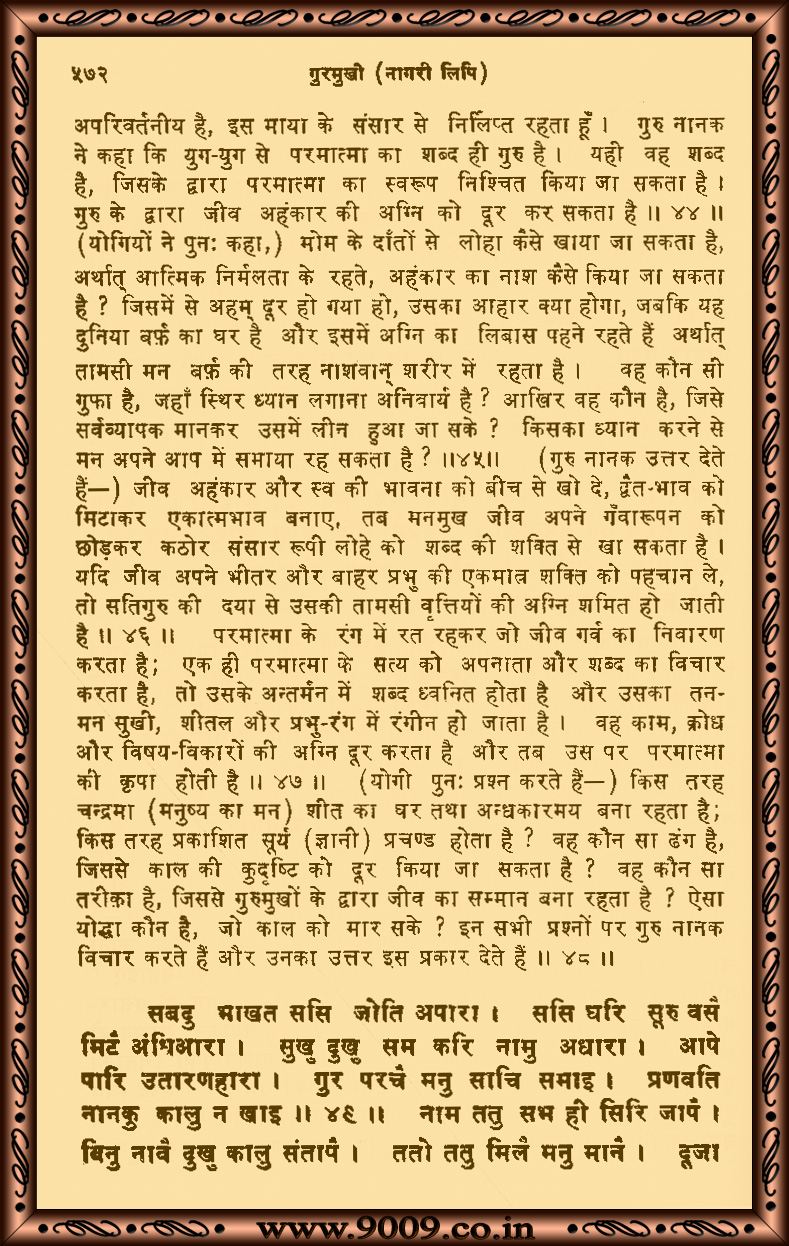 ५७२ गुरमुखी (नागरी लिपि)
अपरिवर्तनीय है, इस माया के संसार से निर्लिप्त रहता हूँ । गुरु नानक
ने कहा कि युग-युग से परमात्मा का शब्द ही गुरु है । यही वह शब्द
है, जिसके द्वारा परमात्मा का स्वरूप निश्चित किया जा सकता है ।
गुरु के द्वारा जीव अहंकार की अग्नि को दूर कर सकता है ॥ ४४ ॥
(योगियों ने पुनः कहा,) मोम के दाँतों से लोहा कैसे खाया जा सकता है,
अर्थात् आत्मिक निर्मलता के रहते, अहंकार का नाश कैसे किया जा सकता
है ? जिसमें से अहम् दूर हो गया हो, उसका आहार क्या होगा, जबकि यह
दुनिया बर्फ़ का घर है और इसमें अग्नि का लिबास पहने रहते हैं अर्थात्
तामसी मन बर्फ़ की तरह नाशवान् शरीर में रहता है । वह कौन सी
गुफा है, जहाँ स्थिर ध्यान लगाना अनिवार्य है ? आखिर वह कौन है, जिसे
सर्वव्यापक मानकर उसमें लीन हुआ जा सके ? किसका ध्यान करने से
मन अपने आप में समाया रह सकता है ? ॥४५॥ (गुरु नानक उत्तर देते
हैं—) जीव अहंकार और स्व की भावना को बीच से खो दे, द्वैत-भाव को
मिटाकर एकात्मभाव बनाए, तब मनमुख जीव अपने गँवारूपन को
छोड़कर कठोर संसार रूपी लोहे को शब्द की शक्ति से खा सकता है ।
यदि जीव अपने भीतर और बाहर प्रभु की एकमात्र शक्ति को पहचान ले,
तो सतिगुरु की दया से उसकी तामसी वृत्तियों की अग्नि शमित हो जाती
है ॥ ४६ ॥ परमात्मा के रंग में रत रहकर जो जीव गर्व का निवारण
करता है; एक ही परमात्मा के सत्य को अपनाता और शब्द का विचार
करता है, तो उसके अन्तर्मन में शब्द ध्वनित होता है और उसका तन-
मन सुखी, शीतल और प्रभु-रंग में रंगीन हो जाता है । वह काम, क्रोध
और विषय-विकारों की अग्नि दूर करता है और तब उस पर परमात्मा
की कृपा होती है ॥ ४७ ॥ (योगी पुनः प्रश्न करते हैं—) किस तरह
चन्द्रमा (मनुष्य का मन) शीत का घर तथा अन्धकारमय बना रहता है;
किस तरह प्रकाशित सूर्य (ज्ञानी) प्रचण्ड होता है ? वह कौन सा ढंग है,
जिससे काल की कुदृष्टि को दूर किया जा सकता है ? वह कौन सा
तरीका है, जिससे गुरुमुखों के द्वारा जीव का सम्मान बना रहता है ? ऐसा
योद्धा कौन है, जो काल को मार सके ? इन सभी प्रश्नों पर गुरु नानक
विचार करते हैं और उनका उत्तर इस प्रकार देते हैं ॥ ४८ ॥
सबदु भाखत ससि जोति अपारा । ससि घरि सूरु वसै
मिटै अंधिआरा । सुखु दुखु सम करि नामु अधारा । आपे
पारि उतारणहारा । गुर परचै मनु साचि समाइ । प्रणवति
नानकु कालु न खाइ ॥ ४९ ॥ नाम ततु सभ ही सिरि जापै ।
बिनु नावै दुखु कालु संतापै । ततो ततु मिलै मनु मानै । दूजा
www.9009.co.in